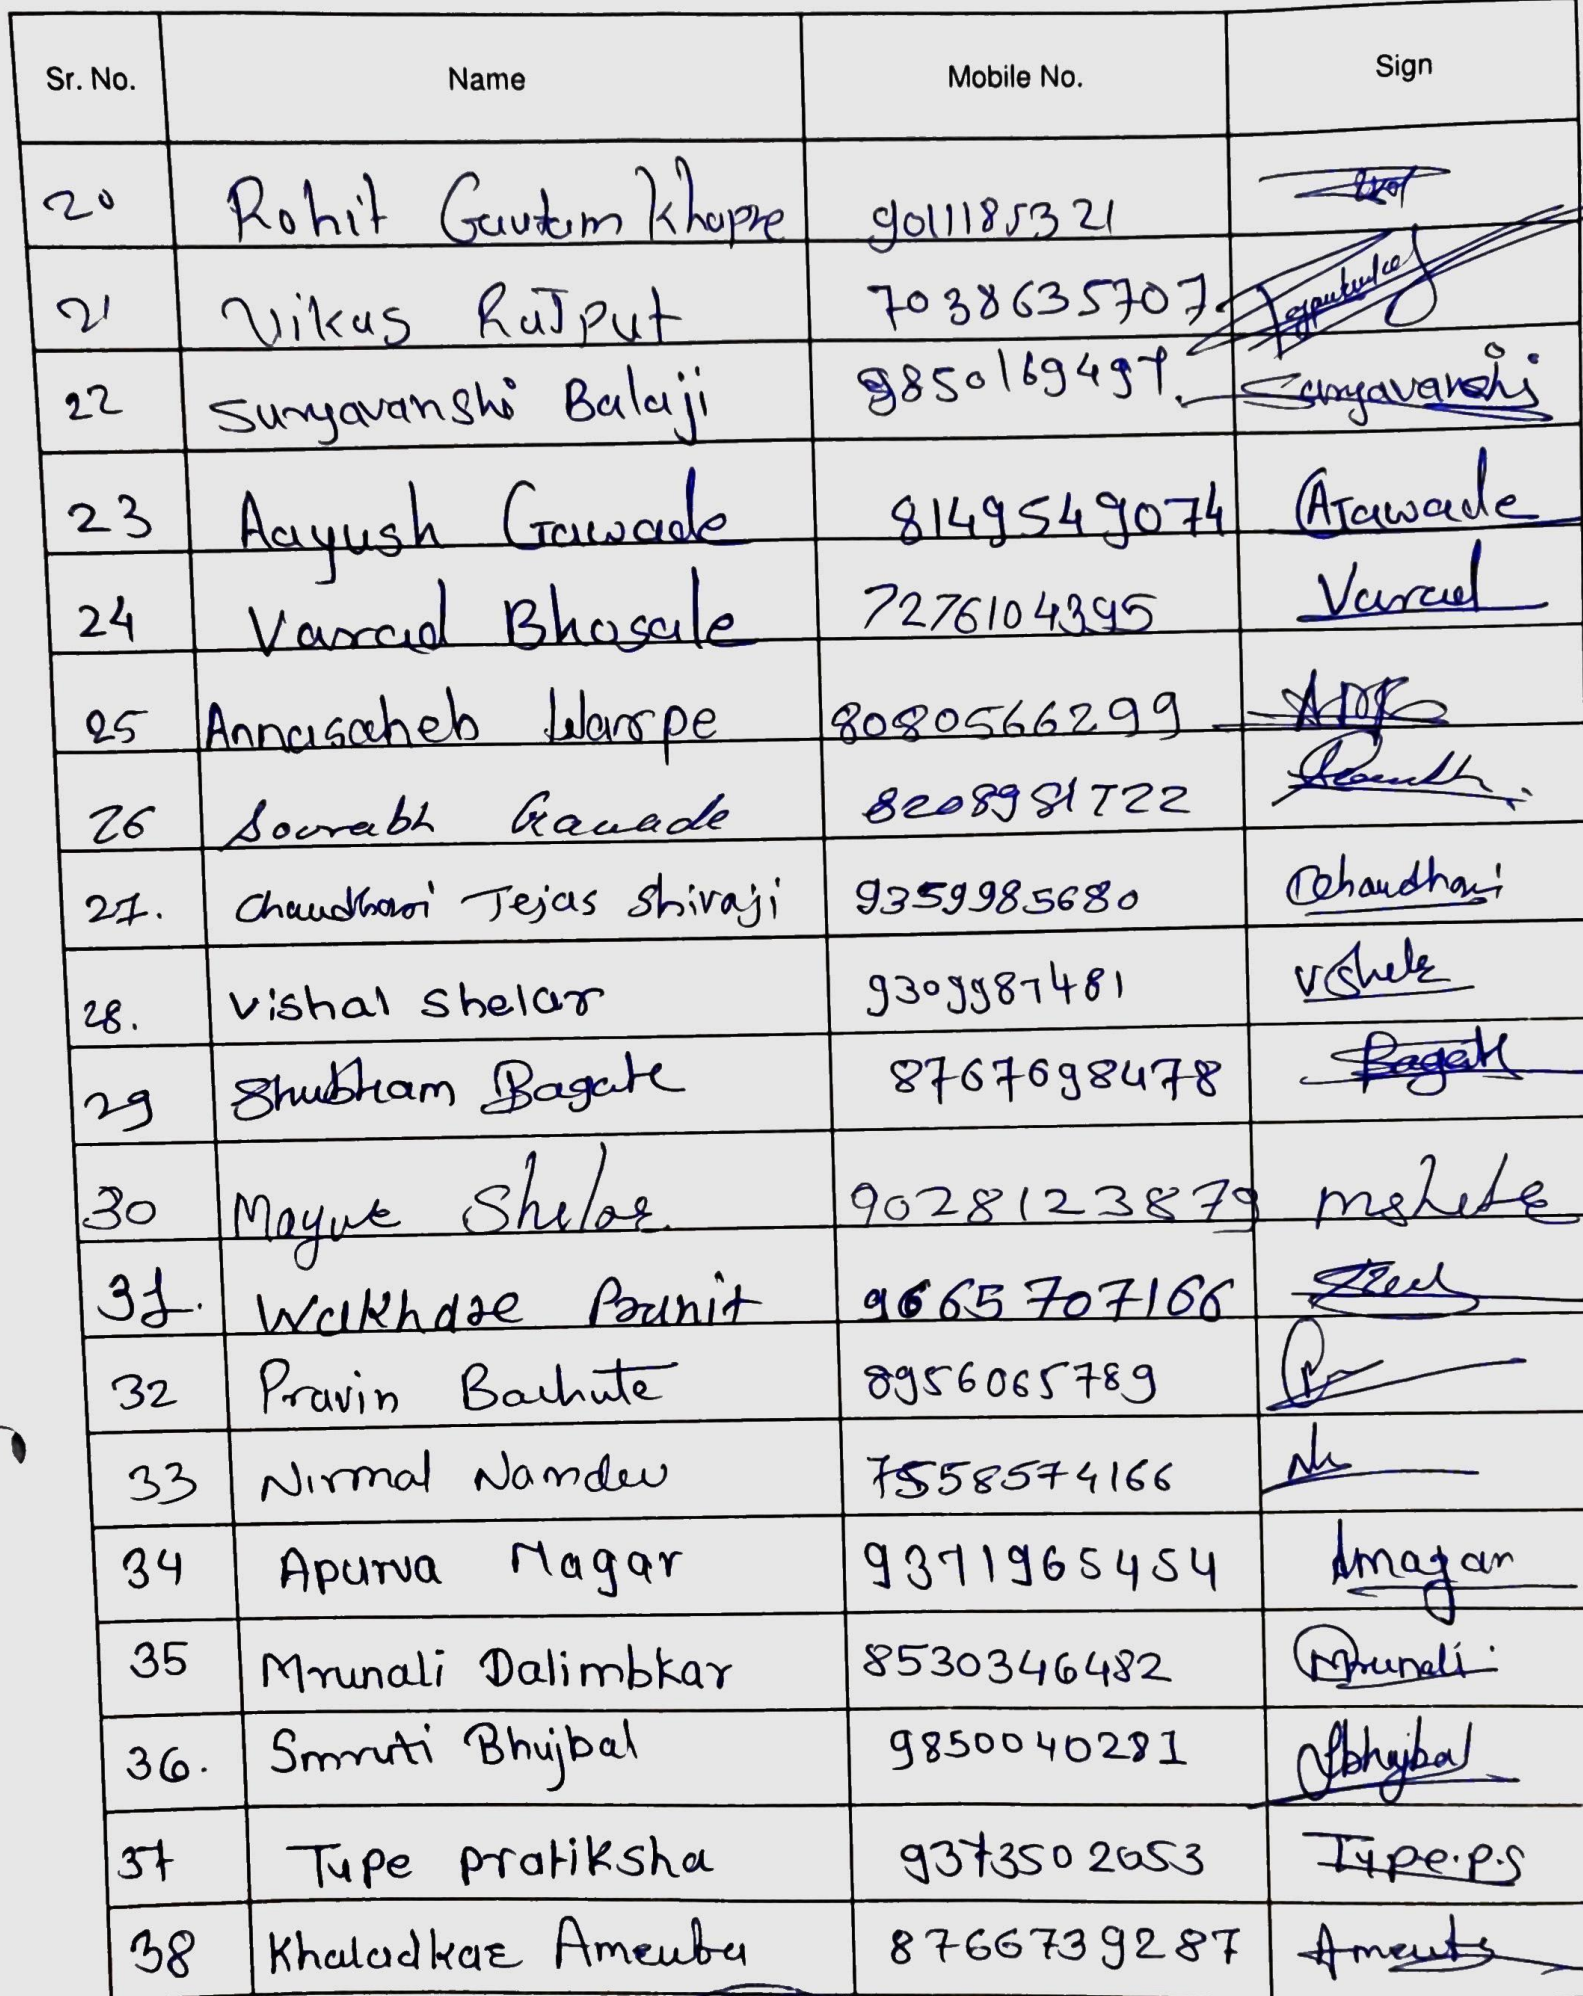 Sr. No. Name Mobile No. Sign
20 Rohit Gautam Khapre 9011185321
21 Vikas RaJput 7038635707
22 Suryavanshi Balaji 9850169497 Suryavanshi
23 Aayush Gawade 8149549074 Gawade
24 Varad Bhosale 7276104395 Varad
25 Annasaheb Warpe 8080566299
26 Sourabh Gawade 8208981722
27. Chaudhari Tejas Shivaji 9359985680 Chaudhari
28. Vishal Shelar 9309987481
29 Shubham Bagate 8767698478 Bagate
30 Mayur Shelar 9028123879
31. Wakhare Punit 9665707166
32 Pravin Bachute 8956065789
33 Nirmal Namdev 7558574166
34 Apurva Magar 9371965454 Amagar
35 Mrunali Dalimbkar 8530346482 Mrunali
36. Smruti Bhujbal 9850040281 Sbhujbal
37 Tupe Pratiksha 9373502053 Tupe.p.s
38 Khaladkar 8766739287